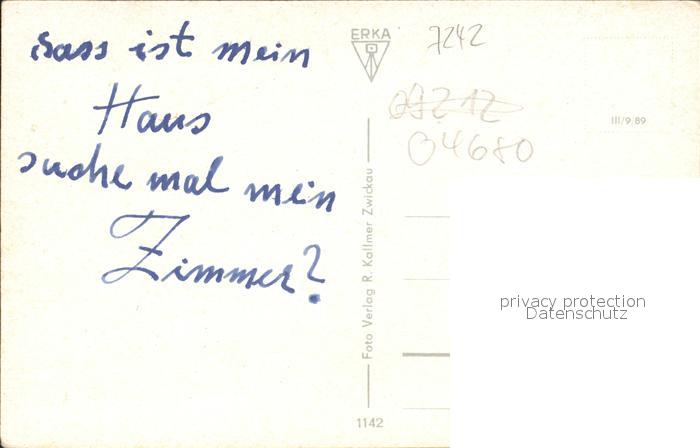 dass ist mein
Haus
suche mal mein
Zimmer?
ERKA
7242
04680
III/9/89
Foto Verlag R. Kallmer Zwickau
1142
privacy protection
Datenschutz